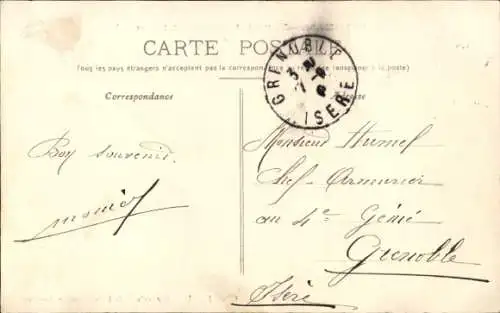 CARTE POSTALE
Tous les pays étrangers n'acceptent pas la correspondance au recto (se renseigner à la poste)
Correspondance
Adresse
GRENOBLE
ISERE
Bon souvenir.
Monsieur Humel
Chef-Armurier
au 4e Génie
Grenoble
Isère